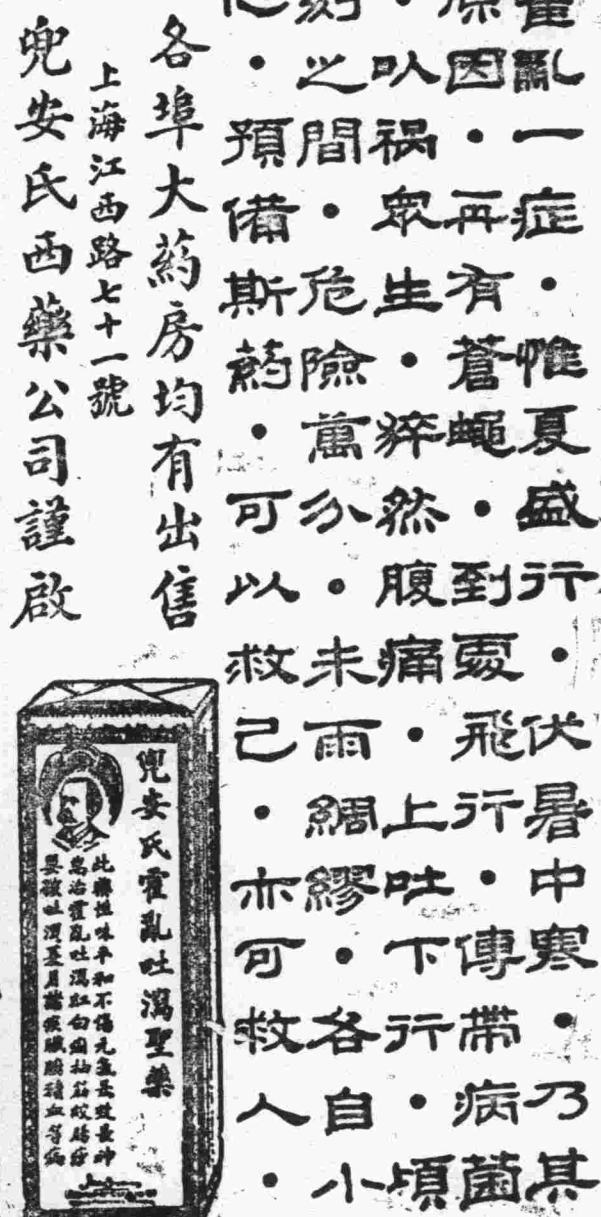 霍亂一症・惟夏盛行・伏暑中寒・乃其
原因・再有蒼蠅・到處飛行・傳帶病菌
・以禍眾生・猝然腹痛・上吐下行・頃
刻之間・危險萬分・未雨綢繆・各自小
心・預備斯葯・可以救己・亦可救人・
各埠大葯房均有出售
上海江西路七十一號
兜安氏西藥公司謹啟
兜安氏霍亂吐瀉聖藥
此藥性味平和不傷元氣最效最神
治霍亂吐瀉紅白痢抽筋絞腸痧
嬰孩吐瀉積血等病